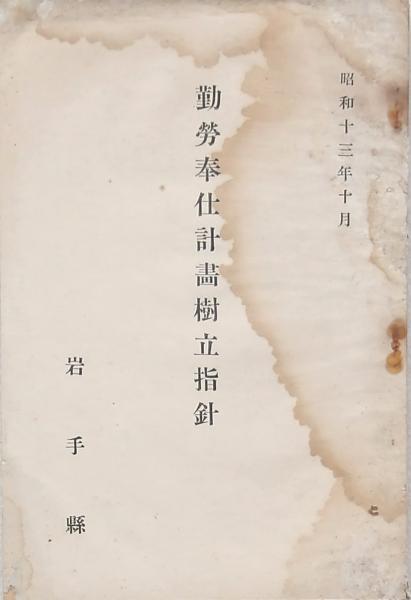 昭和十三年十月
勤勞奉仕計畵樹立指針
岩手縣